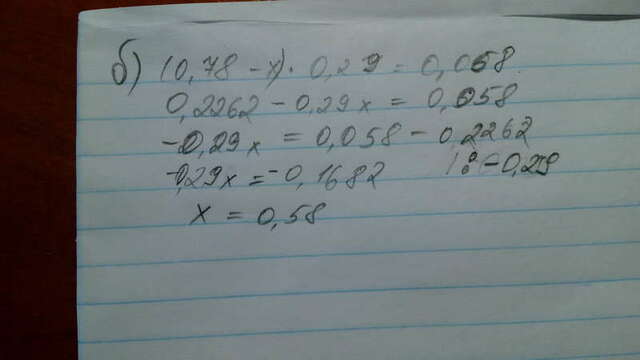 б) (0,78 - x) · 0,29 = 0,058
0,2262 - 0,29x = 0,058
-0,29x = 0,058 - 0,2262
-0,29x = -0,1682 | : -0,29
x = 0,58